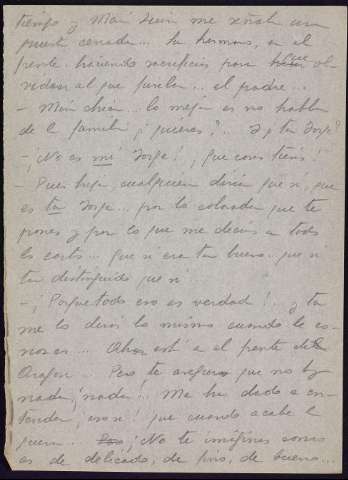 tiempo y Mari Luin me señala una
puerta cerrada... Su hermano, en el
frente haciendo sacrificios para que ol-
vidasen al que fusilan... el padre...
- Mari chica... lo mejor es no hablar
de la familia ¿quieres?.. ¿Y tu Jorge?
- ¡No es mi Jorge! ¡Que cosas tienes!
- Pues hija, cualquiera diria que si, que
es tu Jorge... por lo colorada que te
pones y por lo que me decias en todas
las cartas... Que si era tan bueno.. que si
tan distinguido que si
- ¡Porque todo eso es verdad!.. y tu
me lo dirás lo mismo cuando le co-
nozcas... Ahora está en el frente de
Aragon... Pero te aseguro que no hay
nada, ¡nada!... Me ha dado a en-
tender, eso si! que cuando acabe la
guerra... ¡No te imagines como
es de delicado, de fino, de bueno...